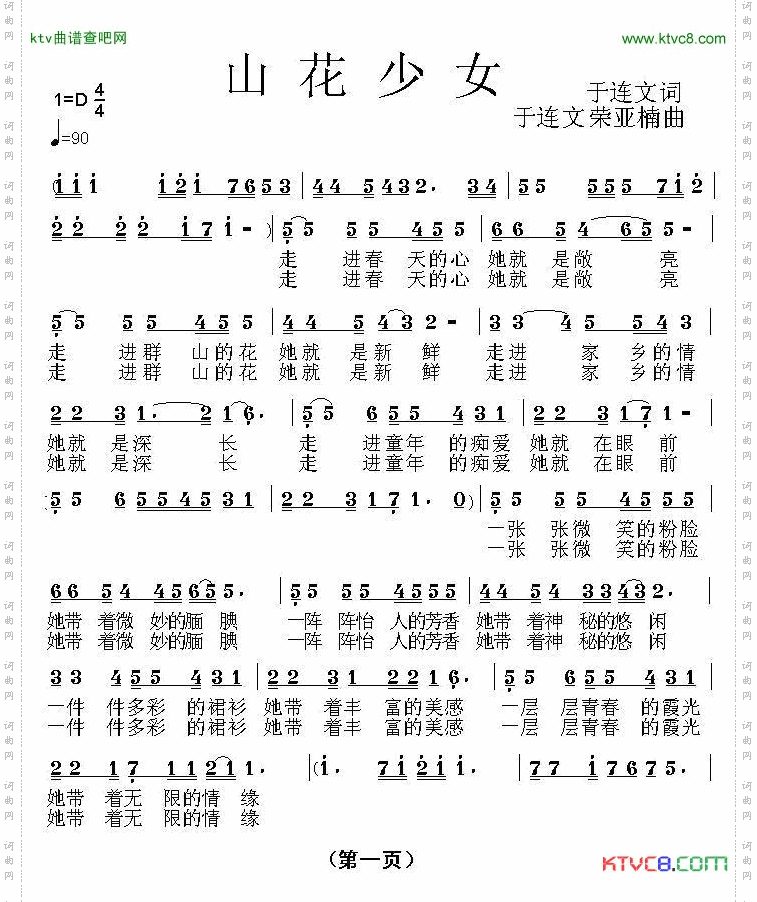 ktv曲谱查吧网
www.ktvc8.com
山花少女
1=D 4/4
于连文词
♩=90
于连文荣亚楠曲
(i i i i 2 i 7 6 5 3 | 4 4 5 4 3 2 . 3 4 | 5 5 5 5 5 7 i 2 |
2 2 2 2 i 7 i - ) | 5 5 5 5 4 5 5 | 6 6 5 4 6 5 5 |
走 进春 天的心 她就 是敞 亮
走 进春 天的心 她就 是敞 亮
5 5 5 5 4 5 5 | 4 4 5 4 3 2 - | 3 3 4 5 5 4 3 |
走 进群 山的花 她就 是新 鲜 走进 家 乡的情
走 进群 山的花 她就 是新 鲜 走进 家 乡的情
2 2 3 1 . 2 1 6 . | 5 5 6 5 5 4 3 1 | 2 2 3 1 7 1 - |
她就 是深 长 走 进童年 的痴爱 她就 在眼 前
她就 是深 长 走 进童年 的痴爱 她就 在眼 前
5 5 6 5 5 4 5 3 1 | 2 2 3 1 7 1 . 0 ) | 5 5 5 5 4 5 5 5 |
一张 张微 笑的粉脸
一张 张微 笑的粉脸
6 6 5 4 4 5 6 5 5 . | 5 5 5 5 4 5 5 5 | 4 4 5 4 3 3 4 3 2 . |
她带 着微 妙的腼 腆 一阵 阵怡 人的芳香 她带 着神 秘的悠 闲
她带 着微 妙的腼 腆 一阵 阵怡 人的芳香 她带 着神 秘的悠 闲
3 3 4 5 5 4 3 1 | 2 2 3 1 2 2 1 6 . | 5 5 6 5 5 4 3 1 |
一件 件多彩 的裙衫 她带 着丰 富的美感 一层 层青春 的霞光
一件 件多彩 的裙衫 她带 着丰 富的美感 一层 层青春 的霞光
2 2 1 7 1 1 2 1 1 . | (i . 7 i 2 i i . | 7 7 i 7 6 7 5 . |
她带 着无 限的情 缘
她带 着无 限的情 缘
（第一页）
KTVC8.COM